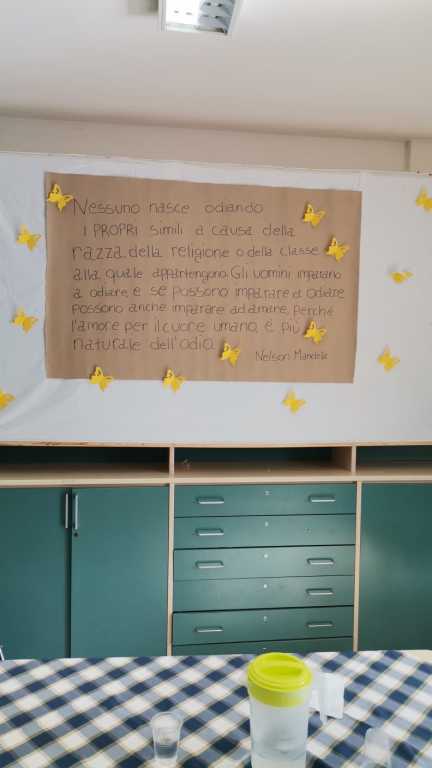 Nessuno nasce odiando
i PROPRI simili a causa della
razza, della religione o della classe
alla quale appartengono. Gli uomini imparano
a odiare, e se possono imparare a odiare
possono anche imparare ad amare, perché
l'amore per il cuore umano, è più
naturale dell'odio.
Nelson Mandela